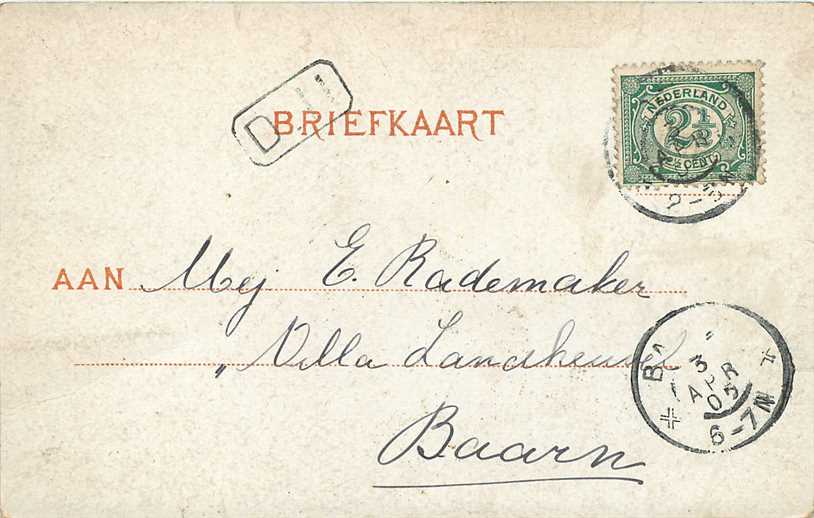 BRIEFKAART
NEDERLAND
2½
2½ CENT
AAN Mej E. Rademaker
„Villa Landheuvel
Baarn
3
APR
03
6-7N